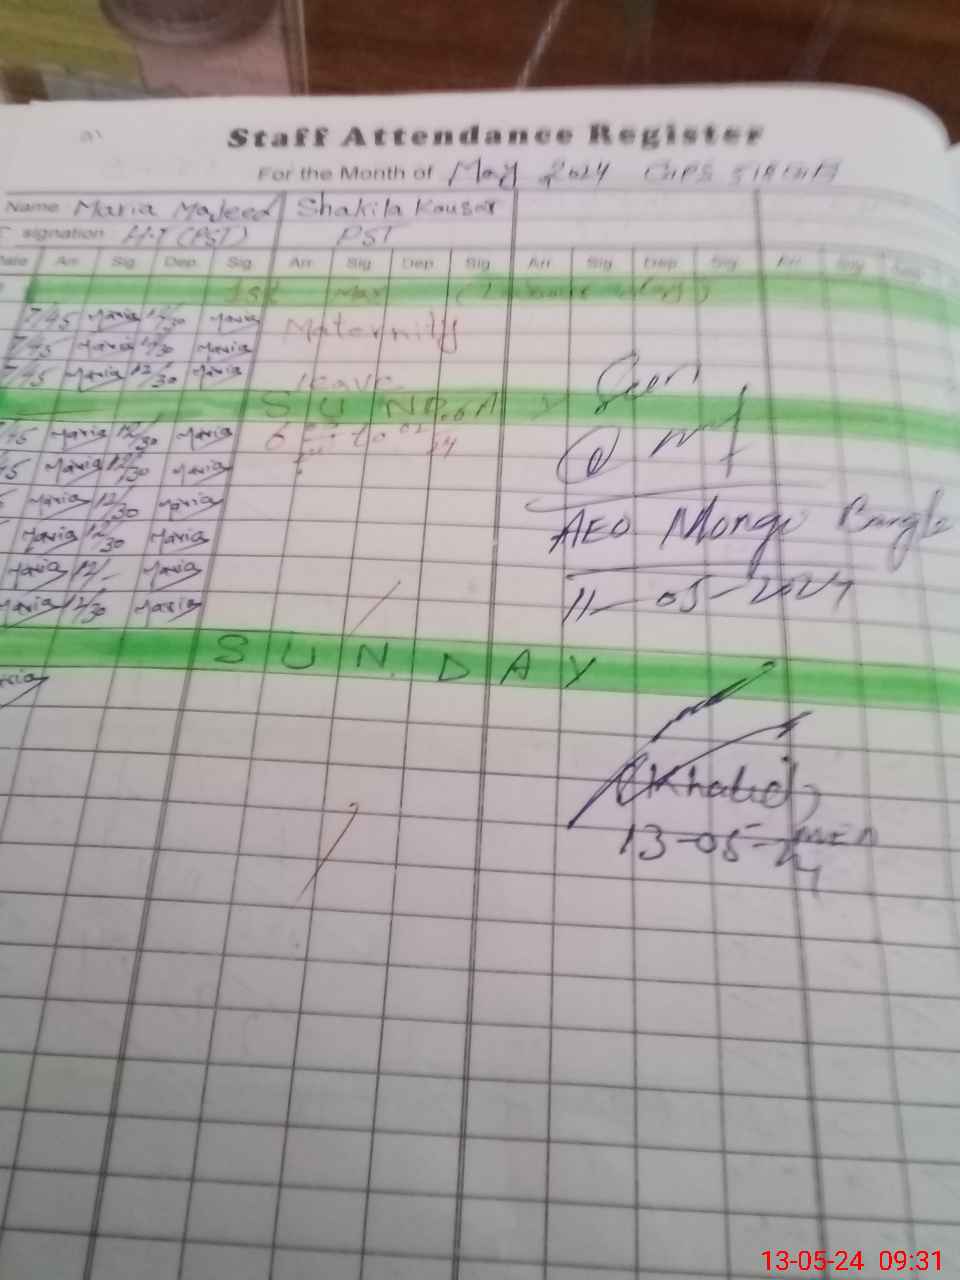 Staff Attendance Register
For the Month of May 2024 GGPS
Name Maria Majeed Shakila Kousar
signation H.T (PST) PST
Date Arr. Sig. Dep. Sig. Arr. Sig. Dep. Sig. Arr. Sig. Dep. Sig. Arr. Sig.
1st May
7/45 Maria 12/30 Maria Maternity
7/45 Maria 12/30 Maria
7/45 Maria 12/30 Maria leave Seen
S U N
/45 Maria 12/30 Maria 6 to
45 Maria 12/30 Maria
Maria 12/30 Maria AEO Mongi Bangla
Maria 12/30 Maria
Maria 12/- Maria 11-05-2024
Maria 12/30 Maria
S U N D A Y
(Khalid)
MEA
13-05-24
13-05-24 09:31